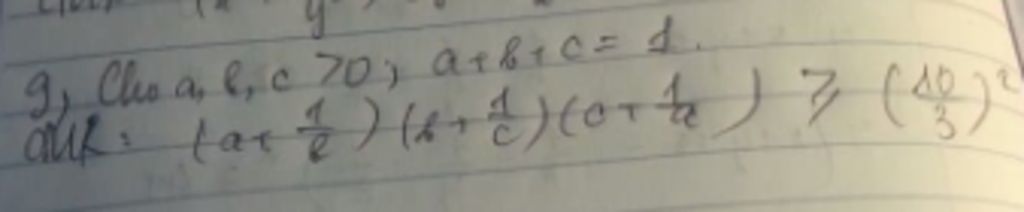 g, Cho a, b, c >0, a+b+c = 1.
CMR: (a+ 1/b)(b+ 1/c)(c+ 1/a) ≥ (10/3)²